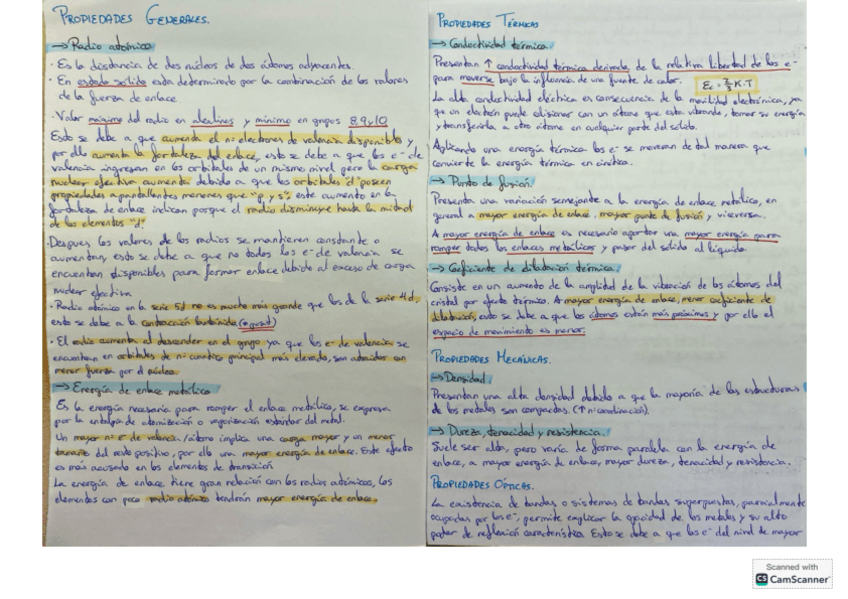 PROPIEDADES GENERALES.
→ Radio atómico
· Es la distancia de dos núcleos de dos átomos adyacentes.
· En estado sólido está determinado por la combinación de los valores
de la fuerza de enlace.
· Valor máximo del radio en alcalinos y mínimo en grupos 8, 9 y 10
Esto se debe a que aumenta el nº electrones de valencia disponibles y
por ello aumenta la fortaleza del enlace, esto se debe a que los e⁻ de
valencia ingresan en los orbitales de un mismo nivel pero la carga
nuclear efectiva aumenta debido a que los orbitales "d" poseen
propiedades apantallantes menores que "p y s", este aumento en la
fortaleza de enlace indican porque el radio disminuye hasta la mitad
de los elementos "d".
· Despues los valores de los radios se mantienen constante o
aumentan, esto se debe a que no todos los e⁻ de valencia se
encuentran disponibles para formar enlace debido al exceso de carga
nuclear efectiva
· Radio atómico en la serie 5d no es mucho más grande que los de la serie 4d,
esto se debe a la contracción lantánida
· El radio aumenta al descender en el grupo ya que los e⁻ de valencia se
encuentran en orbitales de nº cuántico principal más elevado, son atraidos con
menor fuerza por el núcleo.
→ Energía de enlace metálico
Es la energía necesaria para romper el enlace metálico, se expresa
por la entalpía de atomización o vaporización estándar del metal.
Un mayor nº e⁻ de valencia/átomo implica una carga mayor y un menor
tamaño del resto positivo, por ello una mayor energía de enlace. Este efecto
es más acusado en los elementos de transición.
La energía de enlace tiene gran relación con los radios atómicos, los
elementos con poco radio atómico tendrán mayor energía de enlace.
PROPIEDADES TÉRMICAS
→ Conductividad térmica.
Presentan ↑ conductividad térmica derivada de la relativa libertad de los e⁻
para moverse bajo la influencia de una fuente de calor.
K·T
La alta conductividad eléctrica es consecuencia de la movilidad electrónica, ya
que un electrón puede colisionar con un átomo que esta vibrando, tomar su energía
y transferirla a otro átomo en cualquier parte del sólido.
Aplicando una energía térmica los e⁻ se moverán de tal manera que
convierte la energía térmica en cinética.
→ Punto de fusión.
Presenta una variación semejante a la energía de enlace metálico, en
general a mayor energía de enlace, mayor punto de fusión y viceversa.
A mayor energía de enlace es necesario aportar una mayor energía para
romper todos los enlaces metálicos y pasar del sólido al líquido.
→ Coeficiente de dilatación térmica.
Consiste en un aumento de la amplitud de la vibración de los átomos del
cristal por efecto térmico. A mayor energía de enlace, menor coeficiente de
dilatación, esto se debe a que los átomos están más proximos y por ello el
espacio de movimiento es menor.
PROPIEDADES MECÁNICAS.
→ Densidad.
Presentan una alta densidad debido a que la mayoría de las estructuras
de los metales son compactas. (↑ nº coordinación)
→ Dureza, tenacidad y resistencia.
Suele ser alta, pero varía de forma paralela con la energía de
enlace, a mayor energía de enlace, mayor dureza, tenacidad y resistencia.
PROPIEDADES ÓPTICAS.
La existencia de bandas o sistemas de bandas superpuestas, parcialmente
ocupadas por los e⁻, permite explicar la opacidad de los metales y su alto
poder de reflexión característico. Esto se debe a que los e⁻ del nivel de mayor
Scanned with
CS CamScanner